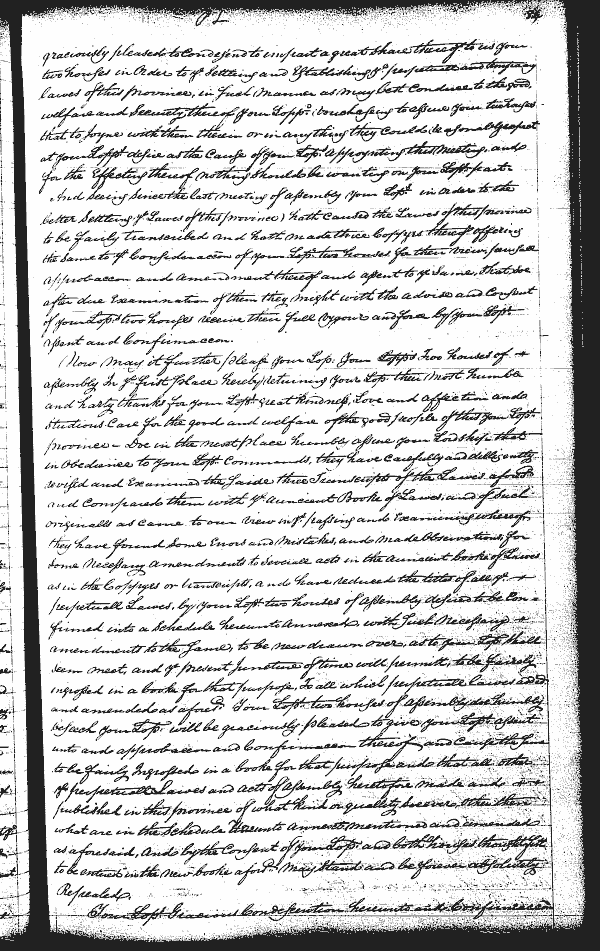 P L
graciously pleased to Condescend to impart a great share thereof to us your
two houses in Order to ye Settling and Establishing ye perpetuall and temporary
lawes of this province, in such Manner as may best Conduce to the good
welfare and Security thereof your Lopps: vouchsafeing to assure your two houses
that to joyne with them therein or in any thing they Could reasonably expect
at your Lopps desire as the Cause of your Lops: appoynting this Meeting, and
for the Effecting thereof nothing should be wanting on your Lopps: part.
And seeing Since the last meeting of assembly your Lopp: in order to the
better Settling ye Lawes of this province) hath Caused the Lawes of this province
to be fairly transcribed and hath made three Coppyes thereof offering
the same to ye Consideracon of your Lops: two houses for their view, perusall
approbacon and amendment thereof and assent to ye same, that soe
after due Examination of them they might with the advise and Consent
of your Lops: two houses receive their full vigour and force by your Lopps:
assent and Confirmacon.
Now may it further please your Lop: your Lopps Two houses of
assembly In ye first place hereby returning your Lop: their most humble
and harty thanks for your Lopps: great kindness, Love and affection and
studious Care for the good and welfare of the good people of this your Lopps:
province – Doe in the next place humbly assure your Lordship that
in Obedience to your Lopps: Commands, they have Carefully and dilligently
revised and Examined the saide three Transcripts of the Lawes aforesd:
and Compared them with ye Auncient Booke of Lawes, and of such
originalls as came to our view in ye passing and Examining whereof
they have found some Errors and mistakes, and made Observations, for
some Necessary amendments to severall acts in the auncient booke of Lawes
as in the Coppyes or transcripts, and have reduced the titles of all ye
perpetuall Lawes, by your Lopps: two houses of assembly desired to be Con-
firmed into a Schedule hereunto Annexed, with such Necessary
amendments to the same, to be new drawn over, as to your Lopps shall
seem meet, and ye present Juncture of time will permit, to be fairely
ingrossed in a booke for that purpose, To all which perpetuall lawes
and amended as aforesd: your Lopps: two houses of assembly doe humbly
beseech your Lop: will be graciously pleased to give your Lopps assent
unto and approbacon and Confirmacon thereof and Cause the same
to be fairly Ingrossed in a booke for that purpose and that all other
ye perpetuall Lawes and acts of assembly heretofore made and
published in this province of what kind or quallity soever, other then
what are in the Schedule hereunto annext mentioned and amended
as aforesaid, And by the Consent of your Lopps: and both houses thought fitt
to be entred in the new booke aforesd: may stand and be forever absolutely
Repealed.
Your Lopps: Gracious Condescention hereunto and Confirmacon